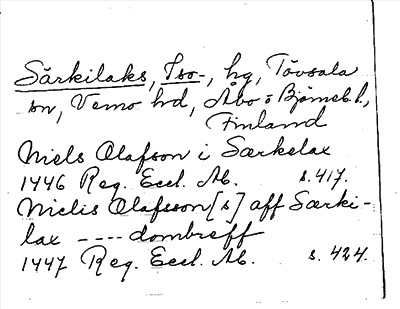 Särkilaks, Iso-, hg, Tövsala
sn, Vemo hd, Åbo o Björneb.l.,
Finland
Niels Olafson i Særkelax
1446 Reg. Eccl. Ab. s. 417.
Niclis Olafsson[s] aff Særki-
lax ---- dombreff
1447 Reg. Eccl. Ab. s. 424.